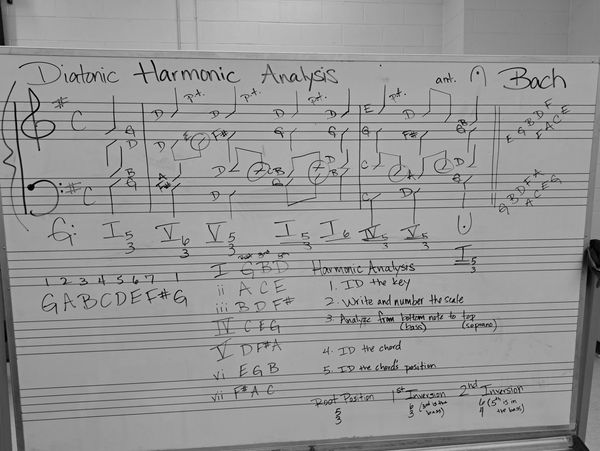 Diatonic Harmonic Analysis Bach
p.t. p.t. p.t. p.t. ant.
# C
# C
G D B G
D D D D E
E F#
G G G F# G
E G B D F
F A C E
G B D F A
A C E G
G: I 5 3 V 6 3 V 5 3 I 5 3 I 6 IV 5 3 V 5 3 I 5 3
1 2 3 4 5 6 7 1
G A B C D E F# G
root 3rd 5th
I G B D
ii A C E
iii B D F#
IV C E G
V D F# A
vi E G B
vii F# A C
Harmonic Analysis
1. ID the key
2. Write and number the scale
3. Analyze from bottom note to top
(bass) (soprano)
4. ID the chord
5. ID the chord's position
Root Position 5 3
1st Inversion 6 3 (3rd is the bass)
2nd Inversion 6 4 (5th is in the bass)